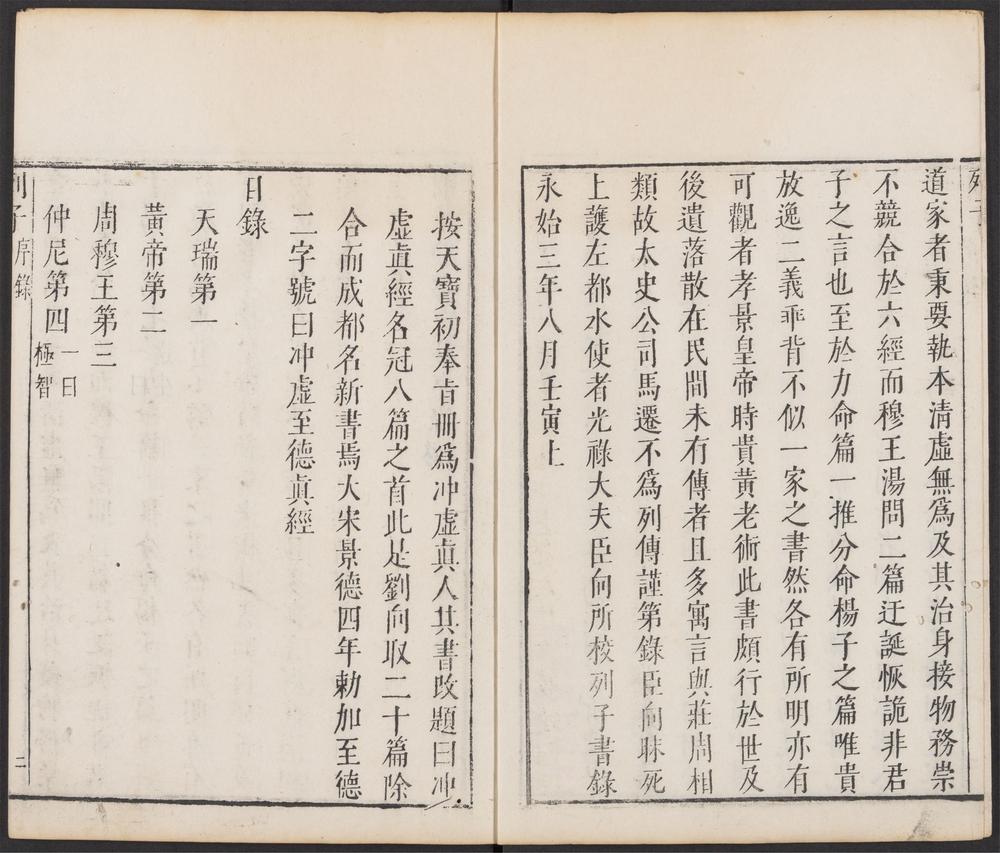 列子
道家者秉要執本清虛無爲及其治身接物務崇
不競合於六經而穆王湯問二篇迂誕恢詭非君
子之言也至於力命篇一推分命楊子之篇唯貴
放逸二義乖背不似一家之書然各有所明亦有
可觀者孝景皇帝時貴黃老術此書頗行於世及
後遺落散在民間未有傳者且多寓言與莊周相
類故太史公司馬遷不爲列傳謹第錄臣向昧死
上護左都水使者光祿大夫臣向所校列子書錄
永始三年八月壬寅上
按天寶初奉旨冊爲冲虛眞人其書改題曰冲
虛眞經名冠八篇之首此是劉向取二十篇除
合而成都名新書焉大宋景德四年勅加至德
二字號曰冲虛至德眞經
目錄
天瑞第一
黃帝第二
周穆王第三
仲尼第四
一曰
極智
列子序錄
二